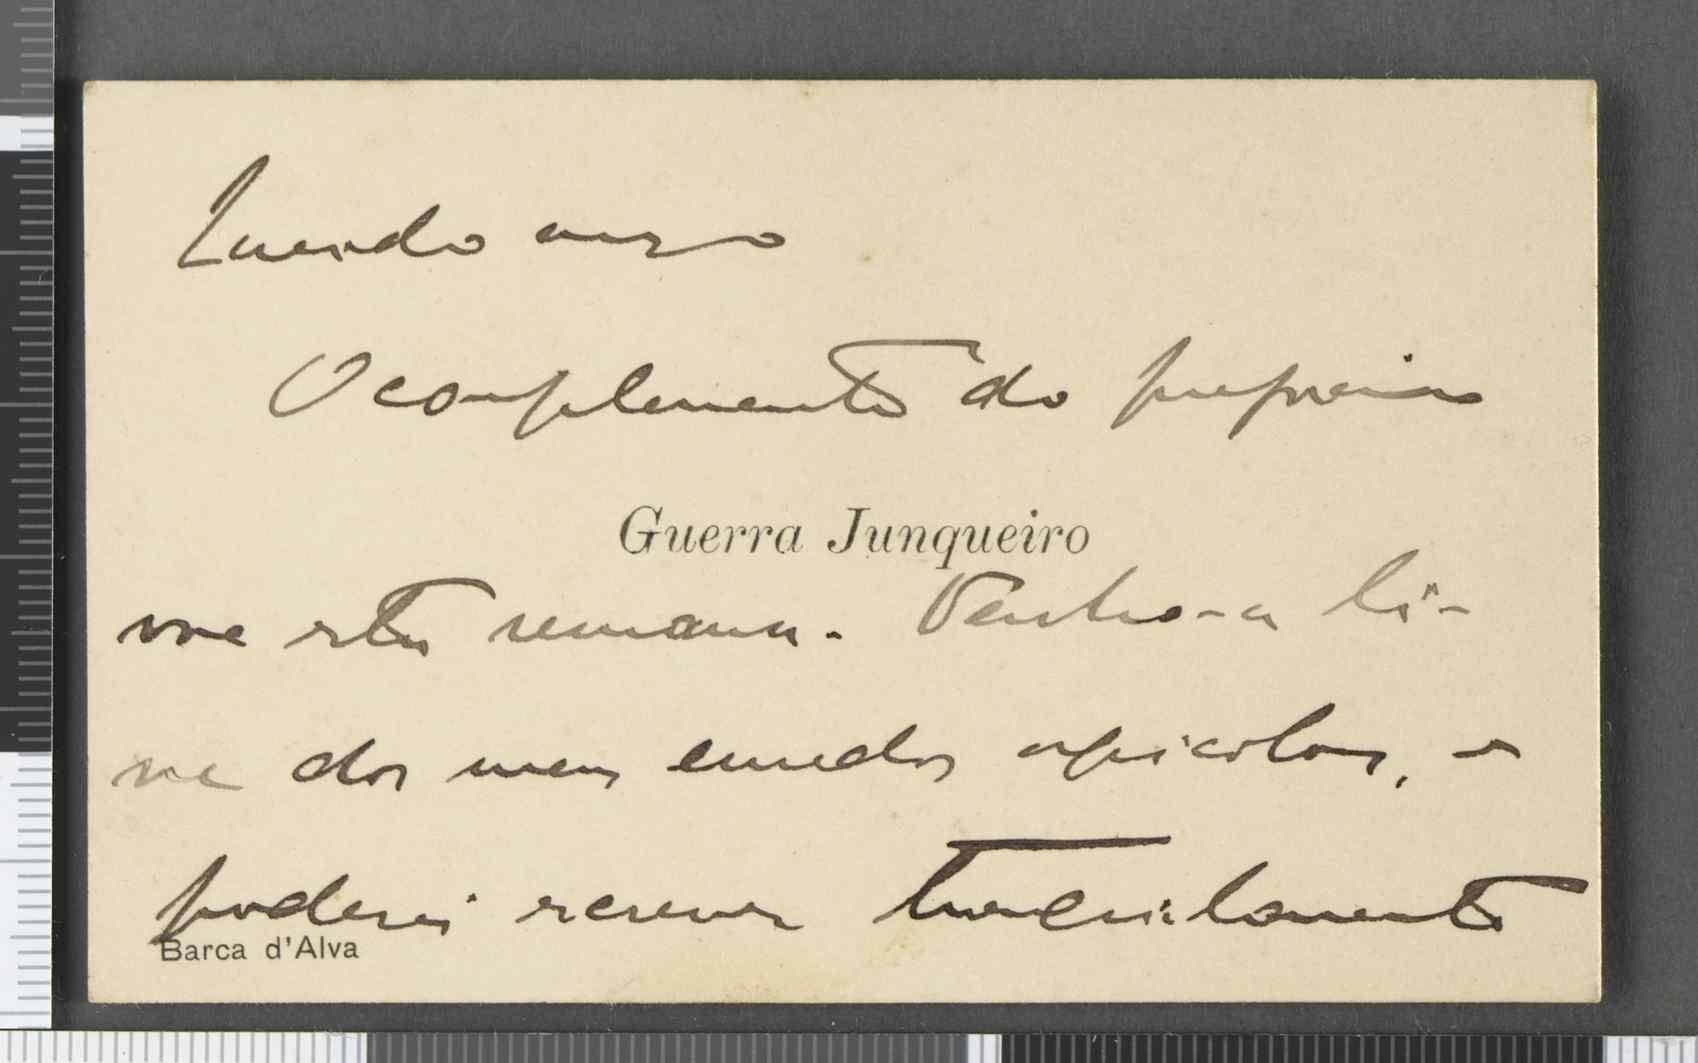 Querido amigo
O complemento do prefacio
Guerra Junqueiro
esta semana. Tenho-a li-
vre dos meus cuidados agricolas, e
poderei escrever tranquilamente
Barca d'Alva